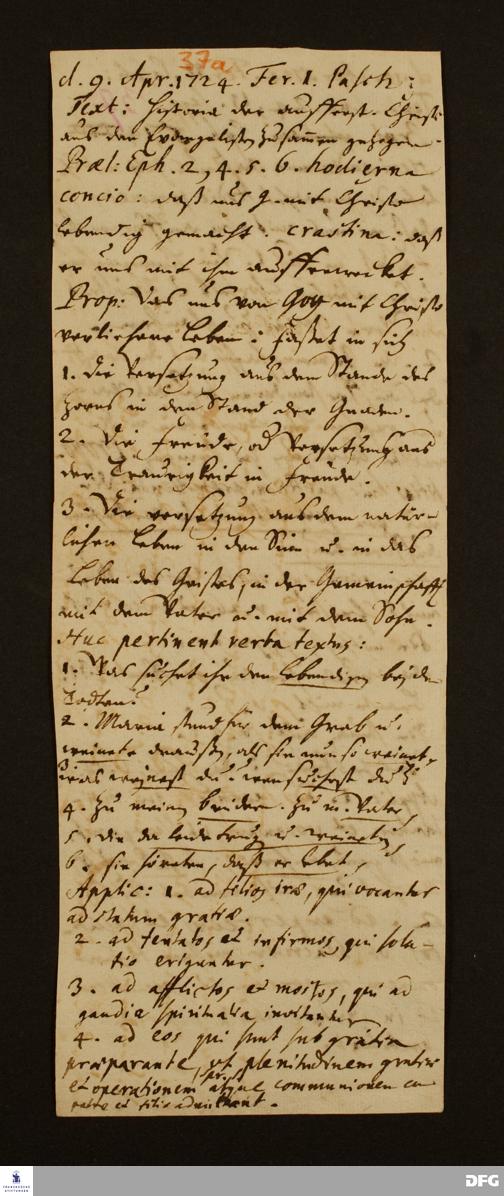 37a
d. 9. Apr. 1724. Fer. 1. Pasch:
Text: Historia der aufferst. Christi
aus den Evangelisten zusammen gezogen.
Præl: Eph. 2, 4. 5. 6. hodierna
concio: daß uns G. mit Christo
lebendig gemacht. crastina: daß
er uns mit ihm aufferwecket.
Prop: Das uns von Gott mit Christo
verliehene Leben: fasset in sich
1. die Versetzung aus dem Stande des
Zorns in den Stand der Gnaden.
2. Die Freude, od Versetzung aus
der Traurigkeit in Freude.
3. Die versetzung aus dem natür-
lichen Leben in den Sinn u. in das
Leben des Geistes, in der Gemeinschafft
mit dem Vater u. mit dem Sohn.
Huc pertinent verba textus:
1. Was suchet ihr den lebendigen bej den
Todten?
2. Maria stund für dem Grab u.
weinete draussen, als sie nun so weinet,
3. was weinest du? wen suchest du?
4. Zu meinen brüdern. zu m. Vater,
5. die da leide trugen u. weineten,
6. sie höreten, daß er lebet,
Applic: 1. ad filios iræ, qui vocantur
ad statum gratiæ.
2. ad tentatos et infirmos, qui sola-
tio eriguntur.
3. ad afflictos et mœstos, qui ad
gaudia spiritualia invitantur
4. ad eos qui sunt sub gratia
præparante, ut plenitudinem gratiæ
et operationem atque communionem cu
patre et filio admittant.
FRANCKESCHE
STIFTUNGEN
DFG